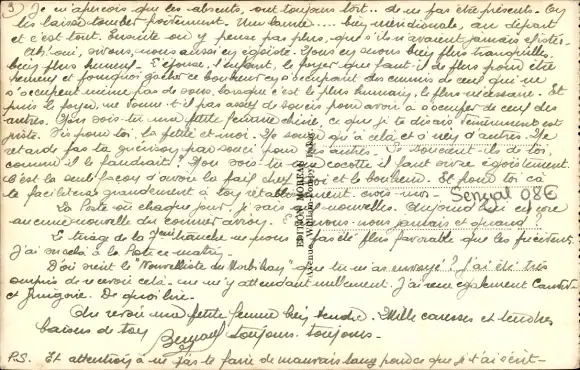 3) Je m'aperçois que les absents, ont toujours tort.. de ne pas être présents. On
les laisse tomber poitement. Une larme .... bien méridionale, au départ
et c'est tout. Ensuite on y pense pas plus, que s'ils n'avaient jamais existés.
Ah! oui, vivons, nous aussi en égoïste. Nous en serons bien plus tranquilles,
bien plus heureux. L'épouse, l'enfant, le foyer que faut-il de plus pour être
heureux et pourquoi gâcher ce bonheur en s'occupant des ennuis de ceux qui ne
s'occupent même pas de vous, lorsque c'est le plus humain, le plus nécessaire. Et
puis le foyer, ne donne-t-il pas assez de soucis pour avoir à s'occuper de ceux des
autres. Tu vois-tu ma petite femme chérie, ce que je te disais dernièrement est
juste. Vis pour toi, la petite et moi. Ne songe qu'à cela et à rien d'autres. Ne
retardes pas ta guérison par souci pour les autres. Se soucient-ils de toi,
comme il le faudrait? Tu vois-tu ma cocotte il faut vivre égoïstement.
C'est la seule façon d'avoir la paix chez soi et le bonheur. Et pour toi ça
te facilitera grandement à ton rétablissement, crois-moi.
Senyal 08€
La Poste où chaque jour, je vais aux nouvelles. Aujourd'hui encore
aucune nouvelle du courrier avion. En aurons-nous jamais et quand?
Le tirage de la 7ème tranche ne nous a pas été plus favorable que les précédents.
J'ai vu cela à la Poste ce matin.
D'où vient le "Nouvelliste du Morbihan" que tu m'as envoyé? J'ai été très
surpris de recevoir cela - ne m'y attendant nullement. J'ai reçu également Candide
et Gringoire. De quoi lire.
Au revoir ma petite femme bien tendre. Mille caresses et tendres
baisers de ton
toujours. toujours.
P.S. Et attention à ne pas te faire de mauvais sang parce que je t'ai écrit-
EDITION MOREAU
Avenue William-Ponty